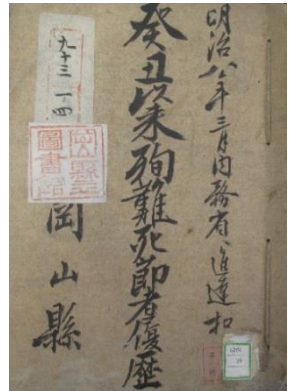 明治八年三月内務省ヘ進達扣
癸丑以来殉難死節者履歴
岡山縣
九十三 一ノ四
岡山縣立
圖書館